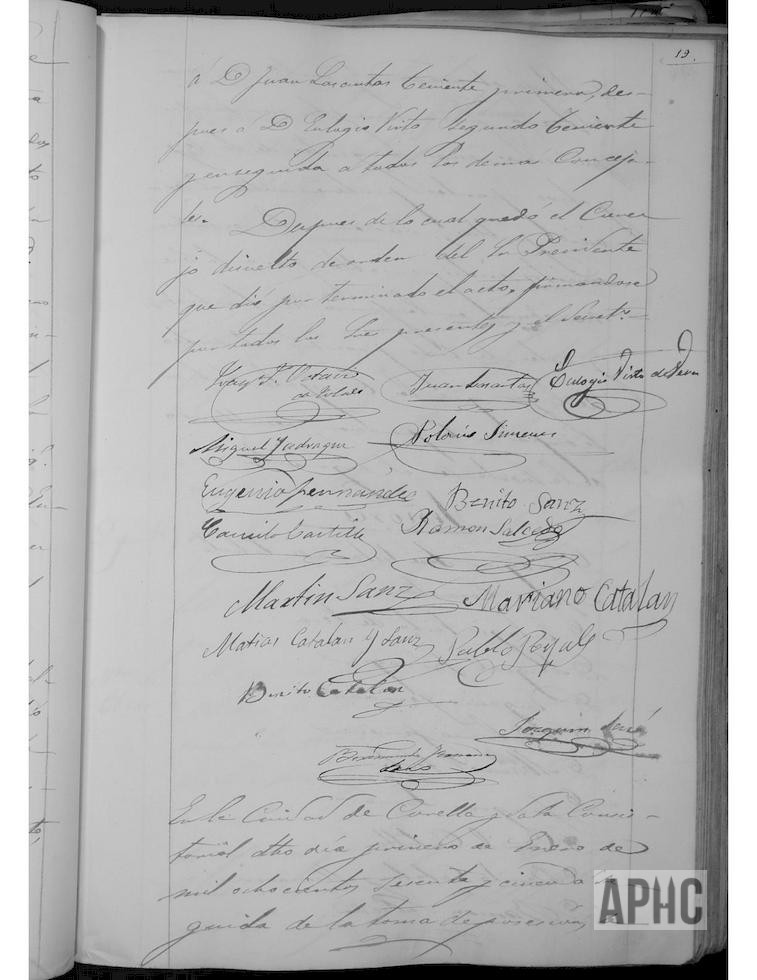 19.
á D Juan Lasantas teniente primero, des-
pues á D Eulogio Virto segundo teniente
y enseguida a todos los demas Conceja-
les. Despues de lo cual quedó el Conce
jo disuelto de orden del Sr Presidente
que dió por terminado el acto, firmandose
por todos los Sres presentes y el Secret.º
Juan Lasantas
Eulogio Virto de Vera
Miguel Jadraque
Polonio Simenez
Eugenio Fernández
Benito Sanz
Camilo Castilla
Ramon Salcedo
Martin Sanz
Mariano Catalan
Matias Catalan y Sanz
Pablo
Benito Catalan
Joaquin
En la Ciudad de Corella y Sala Consis-
torial dho dia primero de Enero de
mil ochocientos sesenta y cinco á
guida de la toma de posesion,
APHC